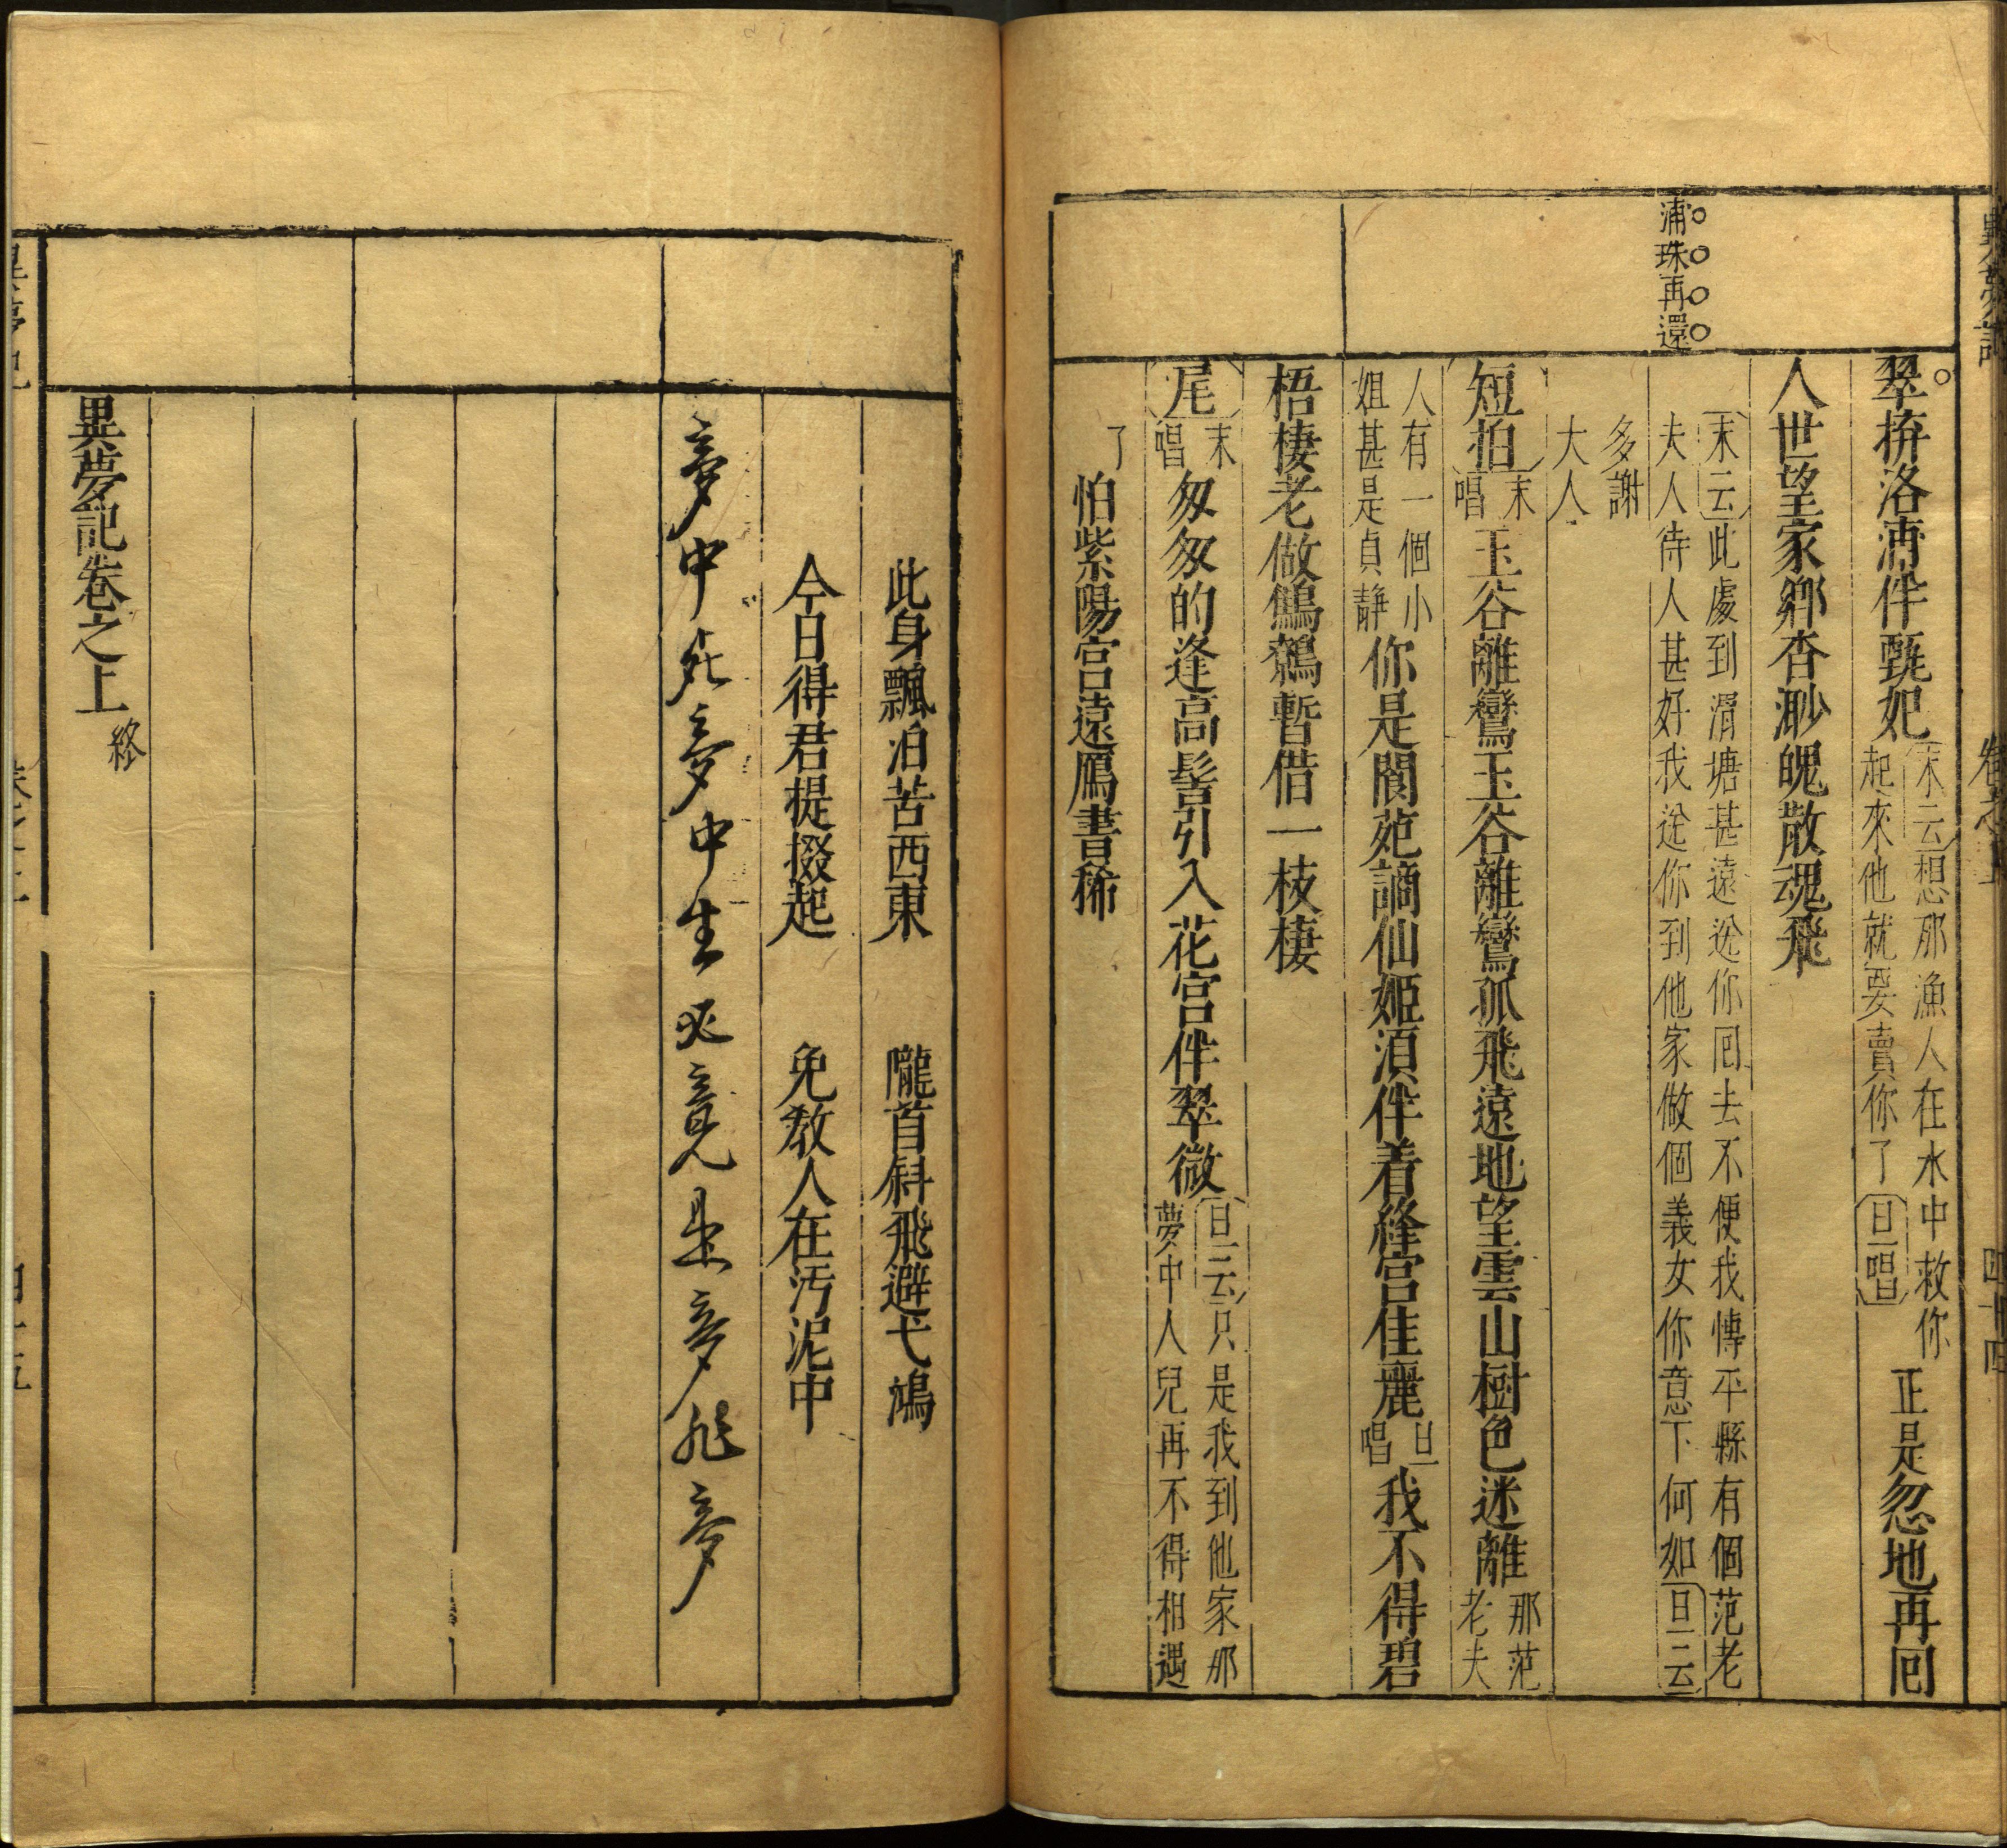 浦珠再還
翠拚洛浦伴甄妃末云想那漁人在水中救你起來他就要賣你了旦唱正是忽地再囘
人世望家鄉杳渺魄散魂飛
末云此處到渭塘甚遠送你囘去不便我博平縣有個范老夫人待人甚好我送你到他家做個義女你意下何如旦云
多謝大人
短拍末唱玉谷離鸞玉谷離鸞孤飛遠地望雲山樹色迷離那范老夫
人有一個小姐甚是貞靜你是閬苑謫仙姬須伴着絳宮佳麗旦唱我不得碧
梧棲老做鷦鷯暫借一枝棲
尾末唱匆匆的逢高髻引入花宮伴翠微旦云只是我到他家那夢中人兒再不得相遇
了怕紫陽宮遠鴈書稀
卷之上
四十四
此身飄泊苦西東　隴首斜飛避弋鴻
今日得君提掇起　免教人在汚泥中
夢中死夢中生畢竟是夢非夢
異夢記卷之上終